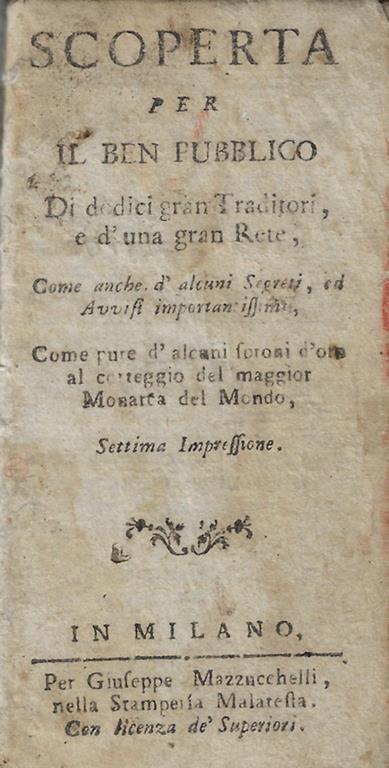 SCOPERTA
PER
IL BEN PUBBLICO
Di dodici gran Traditori,
e d'una gran Rete,
Come anche d'alcuni Segreti, ed
Avvisi importantissimi,
Come pure d'alcuni sproni d'oro
al corteggio del maggior
Monarca del Mondo,
Settima Impressione.
IN MILANO,
Per Giuseppe Mazzucchelli,
nella Stamperia Malatesta.
Con licenza de' Superiori.